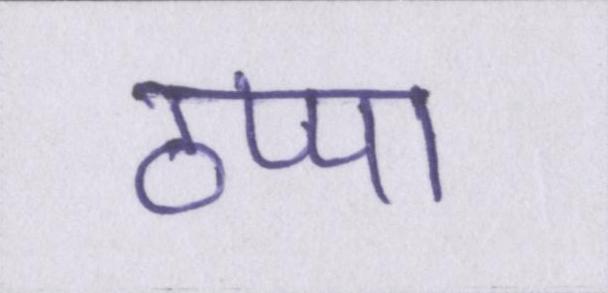 ठप्पा